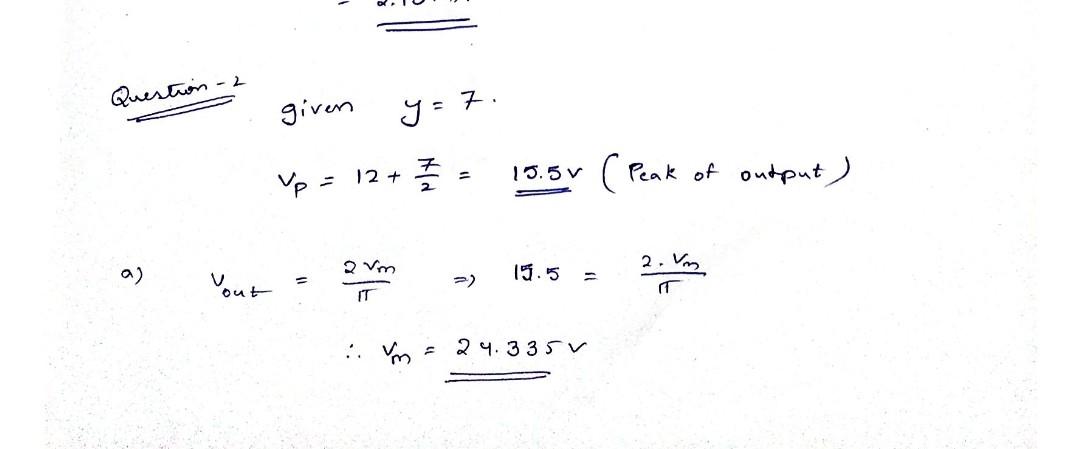 Question-2
given y = 7.
Vp = 12 + 7/2 = 15.5v (Peak of output)
a) Vout = 2Vm/π => 15.5 = 2.Vm/π
∴ Vm = 24.335v